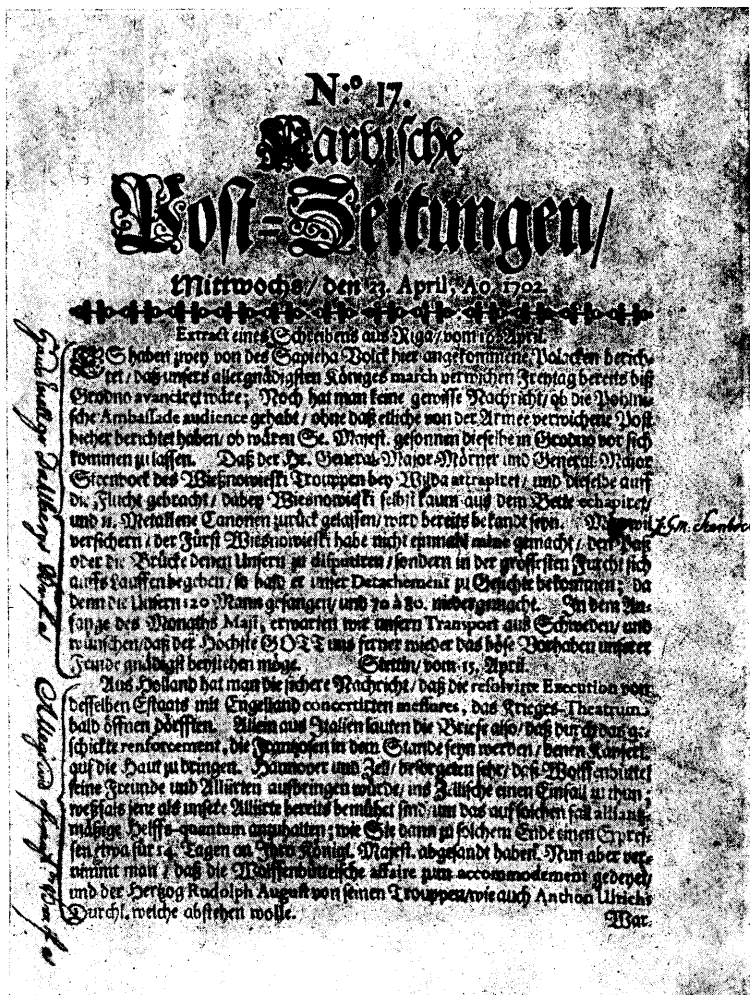 N:º 17.
Narvische
Post-Zeitungen/
Mittwochs/ den 23. April, Ao. 1702.
Extract eines Schreibens aus Riga/ vom 10. April.
ES haben zwey von des Sapieha Volck hier angekommene Polacken berich-
tet/ daß unsers allergnädigsten Königes march verwichen Freytag bereits biß
Grodno avanciret wäre; Noch hat man keine gewisse Nachricht/ ob die Pohlni-
sche Ambassade audience gehabt/ ohne daß etliche von der Armee verwichene Post
hieher berichtet haben/ ob wären Se. Majest. gesonnen dieselbe in Grodno vor sich
kommen zu lassen. Daß der Hr. General-Major Mörner und General-Major
Steenbock des Wießnowieski Trouppen bey Wilda attrapiret/ und dieselbe auff
die Flucht gebracht/ dabey Wiesnowieski selbst kaum aus dem Bette echapiret/
und 11. Metallene Canonen zurück gelassen/ wird bereits bekandt seyn. Man wil
versichern/ der Fürst Wiesnowieski habe nicht einmahl mine gemacht/ den Paß
oder die Brücke denen Unsern zu disputiren/ sondern in der grössesten Furcht sich
auffs Lauffen begeben/ so bald er unser Detachement zu Gesichte bekommen; da
denn die Unsern 120 Mann gefangen/ und 70 à 80. niedergemacht. In dem An-
fange des Monaths Maji/ erwarten wir unsern Transport aus Schweden/ und
wünschen/ daß der Höchste GOTT uns ferner wieder das böse Vorhaben unserer
Feinde gnädigst beystehen möge. Stettin/ vom 15. April.
Aus Holland hat man die sichere Nachricht/ daß die resolvirte Execution von
desselben Estaats mit Engelland concertirten mesures, das Krieges-Theatrum
bald öffnen dörfften. Allein aus Italien lauten die Briefe also/ daß durch das ge-
schickte renforcement, die Frantzosen in dem Stande seyn werden/ denen Käyserl.
auf die Haut zu dringen. Hannover und Zell/ besorgeten sehr/ daß Wolffenbüttel
seine Freunde und Alliirten aufbringen würde/ ins Zellische einen Einfall zu thun;
weßfals jene als unsere Alliirte bereits bemühet sind/ um das auf solchen fall allianz-
mäßige Helffs-quantum anzuhalten; wie Sie dann zu solchem Ende einen Expres-
sen etwa für 14. Tagen an Ihro Königl. Majest. abgesandt haben. Nun aber ver-
nimmt man/ daß die Wolffenbüttelsche affaire zum accommodement gedeyet/
und der Hertzog Rudolph August von seinen Trouppen/ wie auch Anthon Ulrichs
Durchl. welche abstehen wolle.
War-